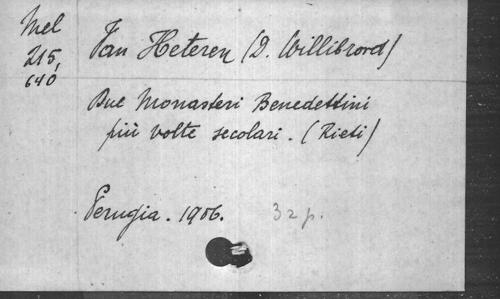 Mel
215,
640
Van Heteren (D. Willibrord)
Due Monasteri Benedettini
più volte secolari. (Rieti)
Perugia. 1906. 32 p.